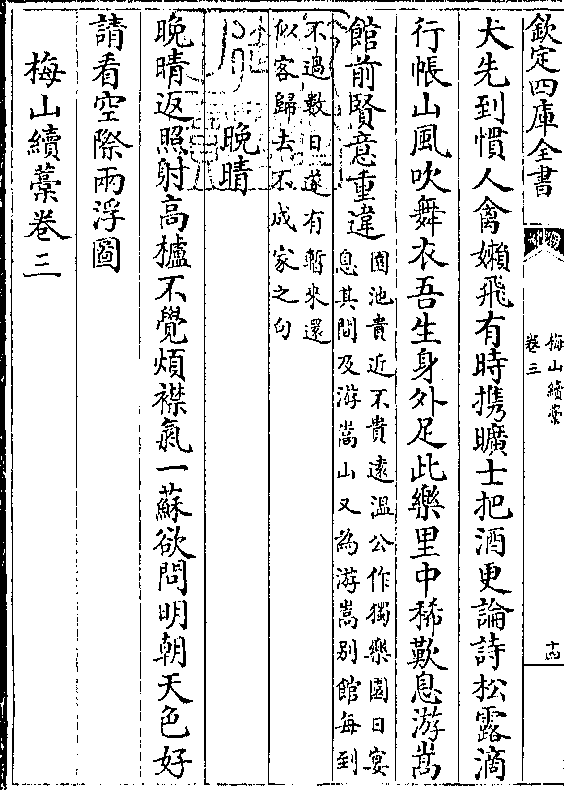 欽定四庫全書
梅山續藁
卷三
十四
犬先到慣人禽嬾飛有時携曠士把酒更論詩松露滴
行帳山風吹舞衣吾生身外足此樂里中稀歎息游嵩
館前賢意重違
園池貴近不貴逺溫公作獨樂園日宴
息其間及游嵩山又為游嵩别館每到
不過數日遂有暫來還
似客歸去不成家之句
晚晴
晚晴返照射高櫨不覺煩襟氣一蘇欲問明朝天色好
請看空際兩浮圖
梅山續藁卷三